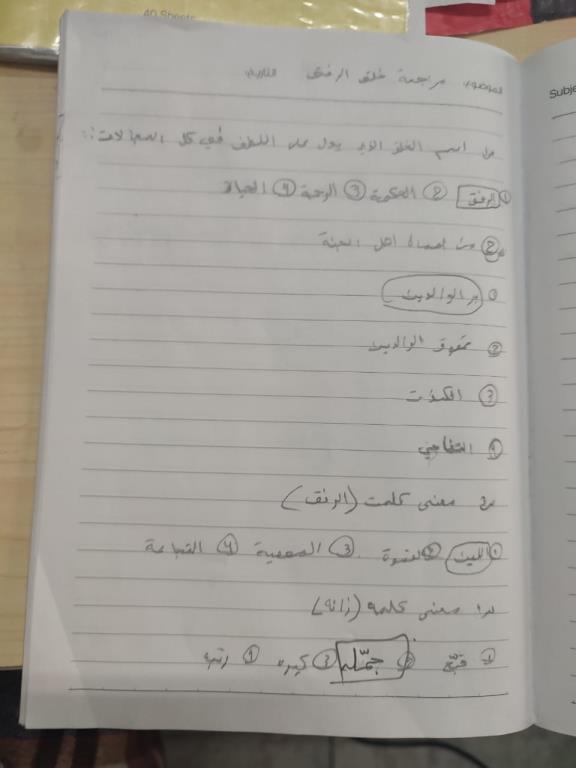 40 Sheets
Subje
الموضوع: مراجعة خلق الرفق التاريخ:
س١ اسم الخلق الذي يدل على اللطف في كل المعاملات:
① الرفق ② الحكمة ③ الرحمة ④ الحياة
س② من صفات اهل الجنة
① بر الوالدين
② عقوق الوالدين
③
④
س٣ معنى كلمت (الرفق)
① اللين ② القسوة ③ العصبية ④
س٤ معنى كلمه (زانه)
① قبّح ② جمّله ③ ④